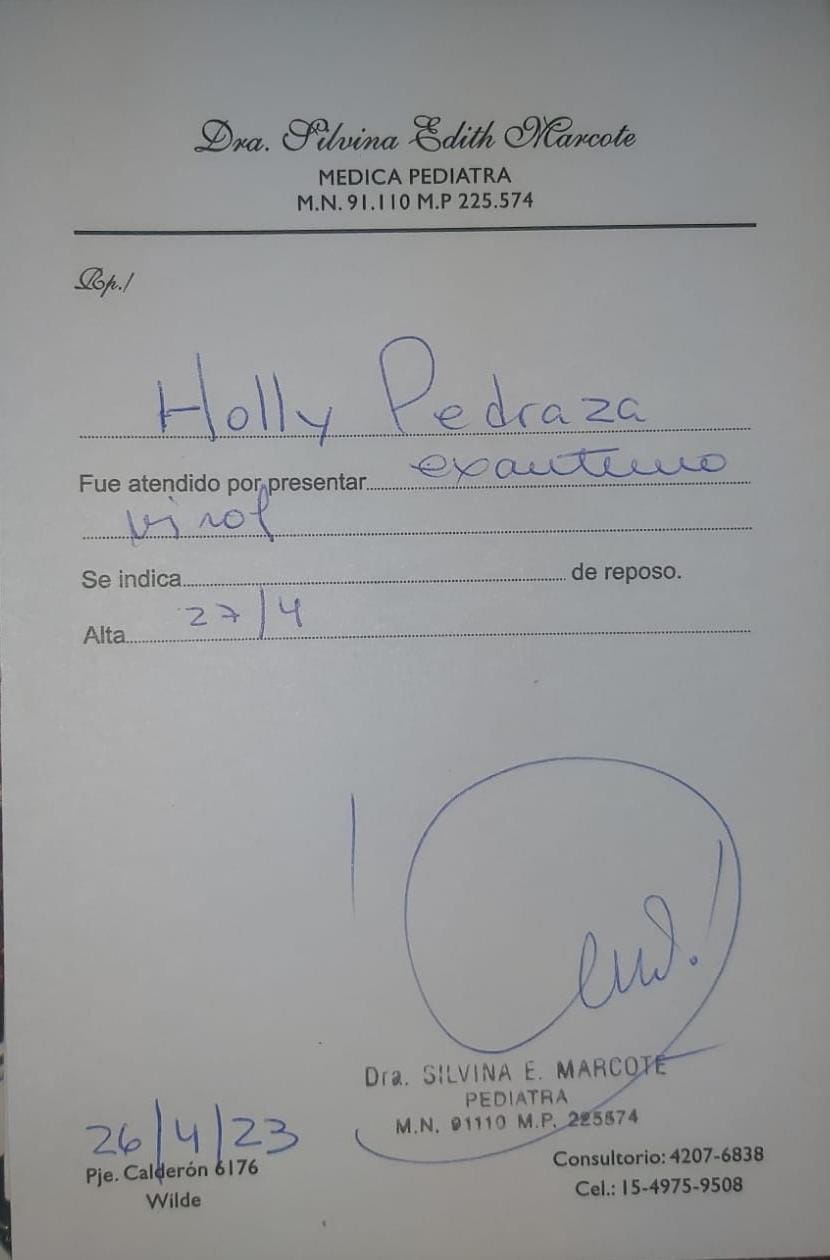 Dra. Silvina Edith Marcote
MEDICA PEDIATRA
M.N. 91.110 M.P 225.574
Rp./
Holly Pedraza
Fue atendido por presentar exantema
viral
Se indica de reposo.
Alta 27/4
Dra. SILVINA E. MARCOTE
PEDIATRA
M.N. 91110 M.P. 225574
26/4/23
Pje. Calderón 6176
Wilde
Consultorio: 4207-6838
Cel.: 15-4975-9508